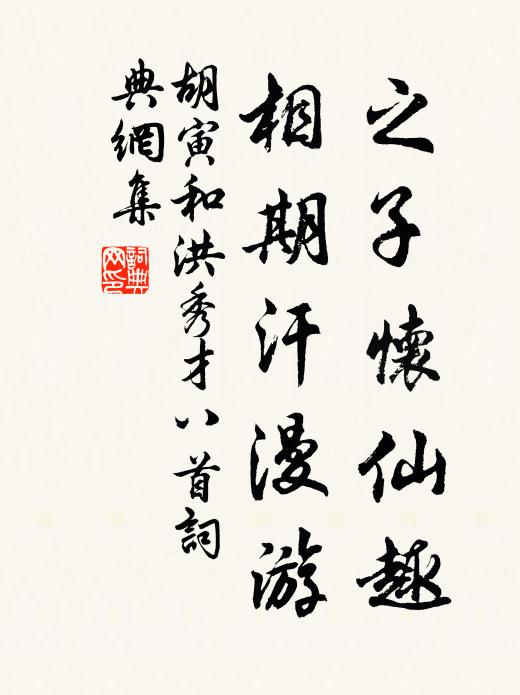 之子懷仙趣
相期汗漫游
胡寅和洪秀才八首詞
典網集
詞典网印